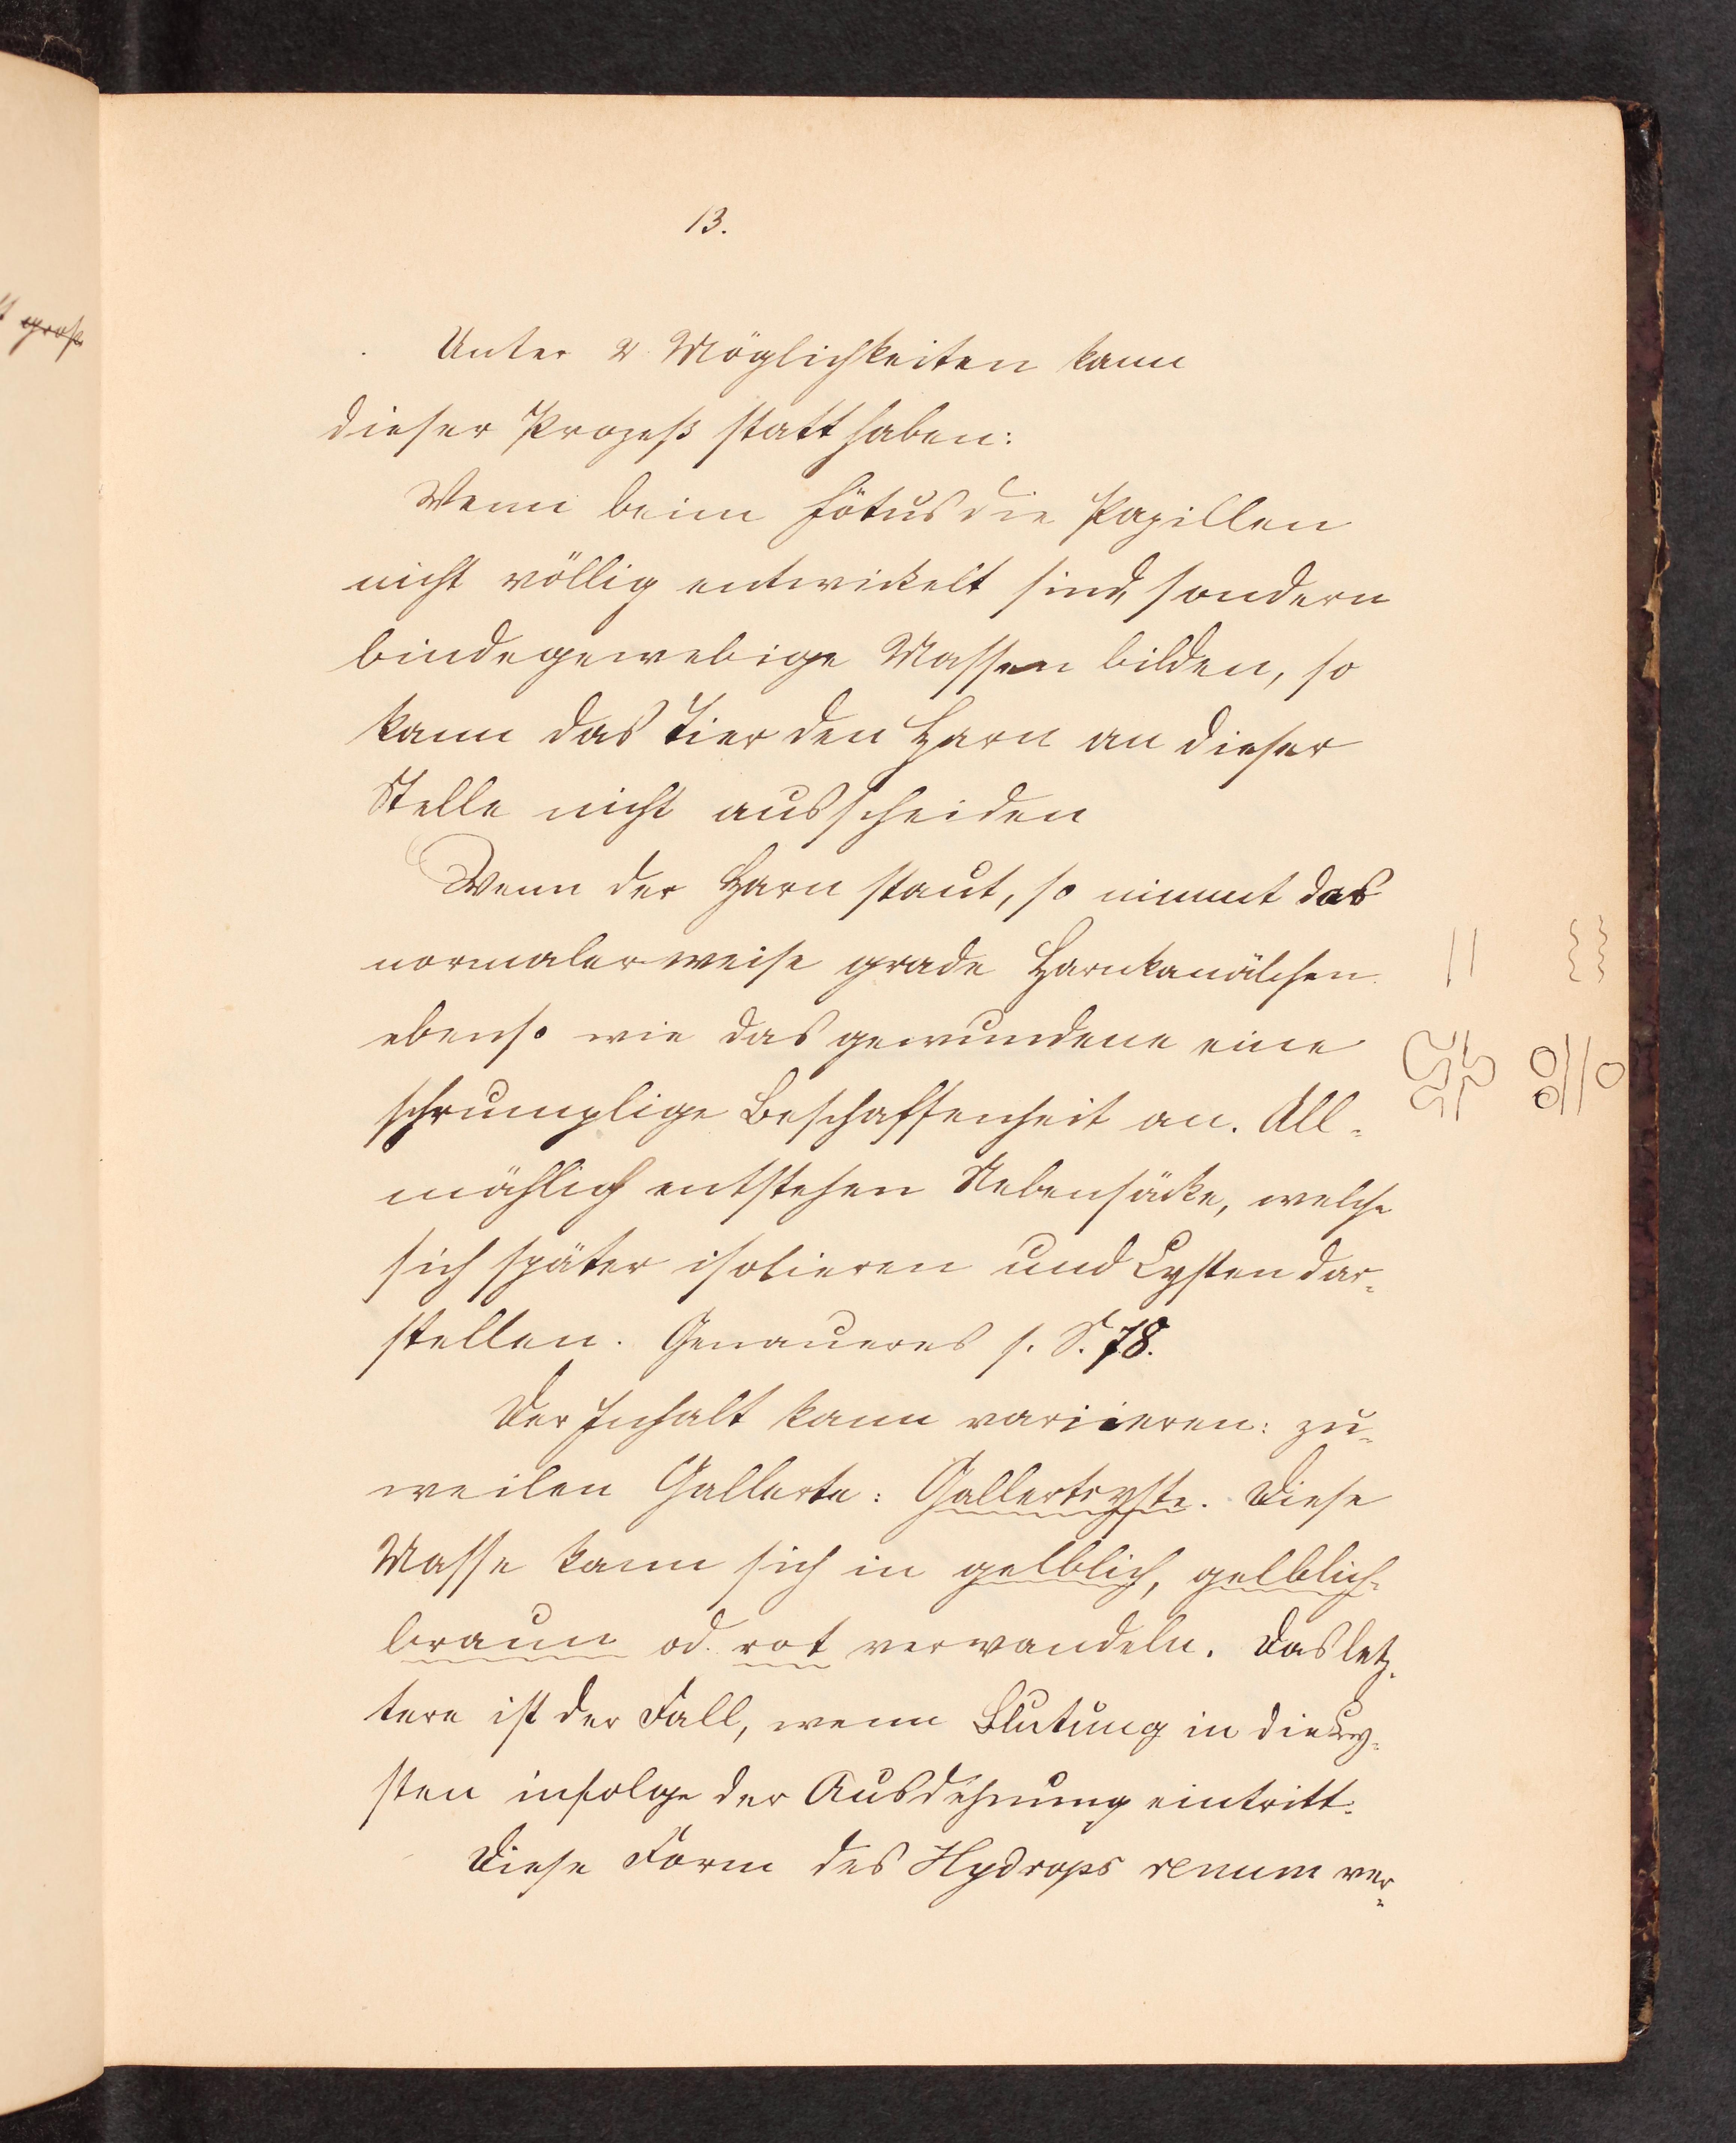 13.
t groß
Unter 2 Möglichkeiten kann
dieser Prozeß statt haben:
Wenn beim Fötus die Papillen
nicht völlig entwickelt sind, sondern
bindegewebige Massen bilden, so
kann das Tier den Harn an dieser
Stelle nicht ausscheiden
Wenn der Harn staut, so nimmt das
normalerweise grade Harnkanälchen
ebenso wie das gewundene eine
schrumplige Beschaffenheit an. All-
mählich entstehen Nebensäcke, welche
sich später isolieren und Cysten dar-
stellen. Genaueres s. S. 78.
Der Inhalt kann variieren: zu-
weilen Gallerte: Gallertcyste. Diese
Masse kann sich in gelblich, gelblich-
braun od. rot verwandeln. Das letz-
tere ist der Fall, wenn Blutung in die Cy-
sten infolge der Ausdehnung eintritt.
Diese Form des Hydrops renum ver-